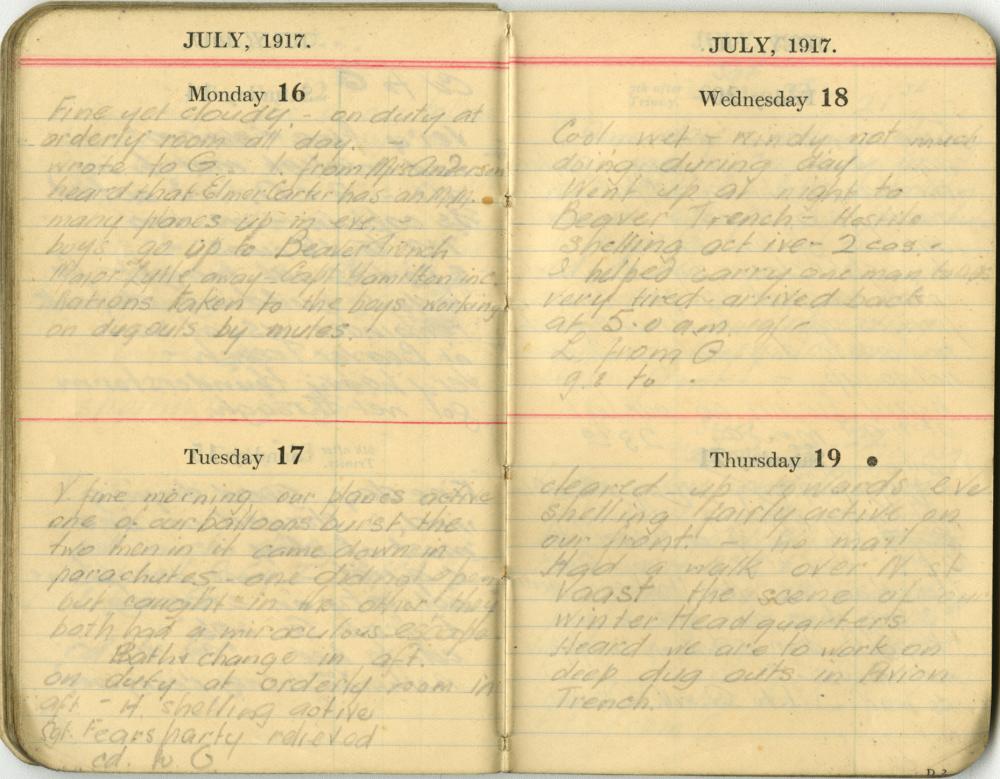 JULY, 1917.
Monday 16
Fine yet cloudy - on duty at
orderly room all day. -
wrote to G. from Mrs Anderson
heard that Elmer Carter has an M.M.
many planes up in eve. -
boys go up to Beaver Trench
Major Lytle away Capt Hamilton inc.
Rations taken to the boys working
on dugouts by mules.
Tuesday 17
V. fine morning our planes active
one of our balloons burst the
two men in it came down in
parachutes - one did not open
but caught in the other they
both had a miraculous escape
Bath & change in aft.
on duty at orderly room in
aft - H. shelling active
Sgt. Fears party relieved
cd. to G
JULY, 1917.
Wednesday 18
Cool wet - windy not much
doing during day
Went up at night to
Beaver Trench - Hostile
shelling active - 2 cas.
I helped carry one man
very tired arrived back
at 5.0 a.m.
L. from G
to
Thursday 19
cleared up towards eve
shelling fairly active on
our front. - no mail
Had a walk over N St
Vaast the scene of our
winter Headquarters
Heard we are to work on
deep dug outs in Avion
Trench.
D 2